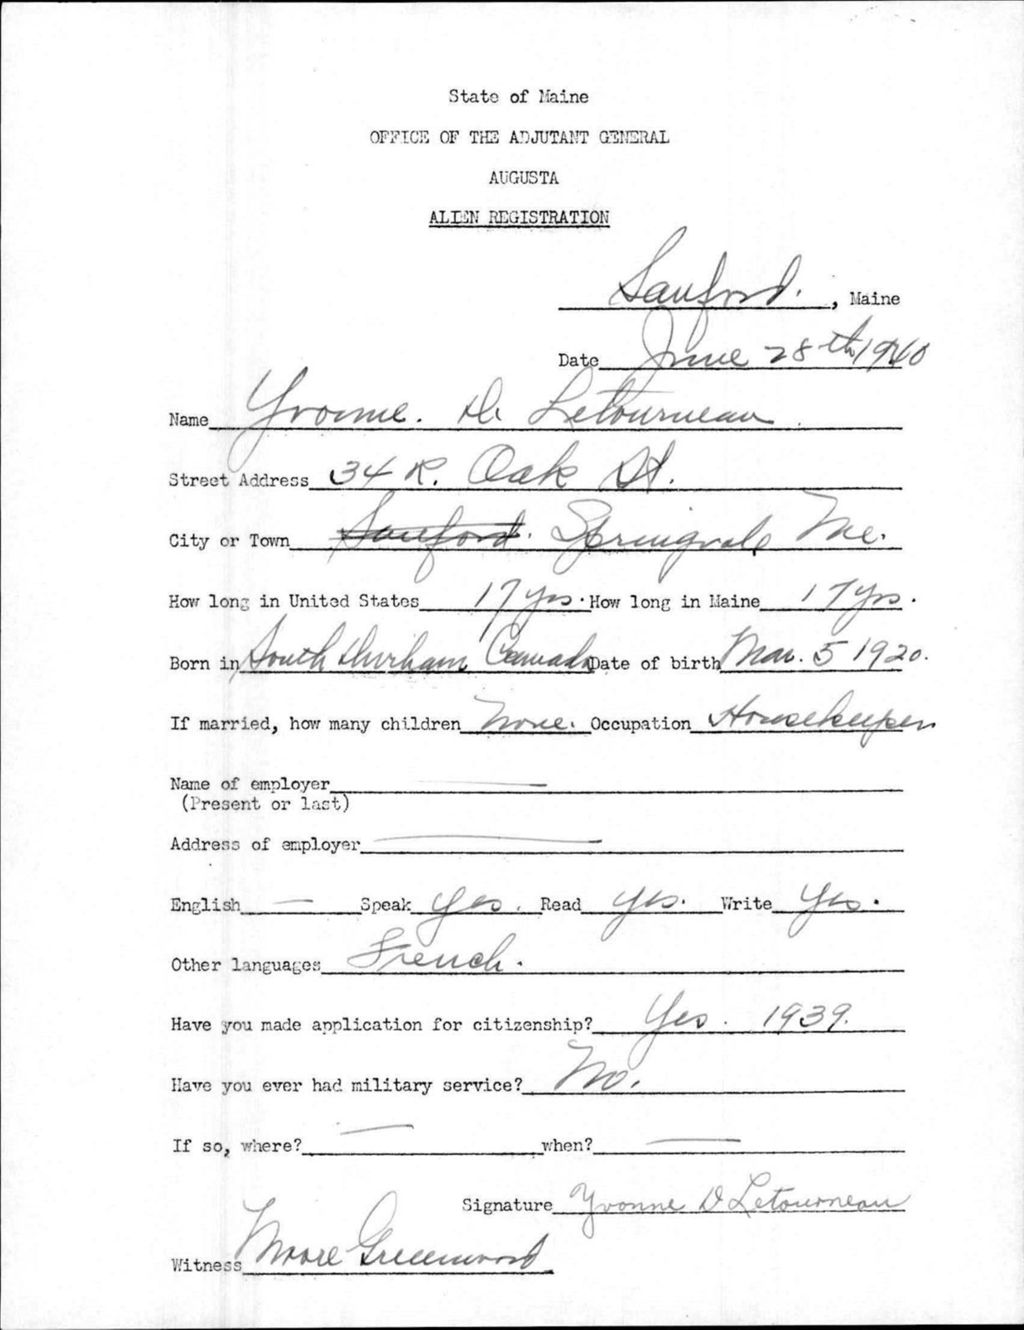 State of Maine
OFFICE OF THE ADJUTANT GENERAL
AUGUSTA
ALIEN REGISTRATION
Sanford. , Maine
Date June 28th 1940
Name Yvonne. D. Letourneau
Street Address 34 R. Oak St.
City or Town Sanford. Springvale Me.
How long in United States 17 yrs. How long in Maine 17 yrs.
Born in South Durham, Canada Date of birth Mar. 5 1920.
If married, how many children None. Occupation Housekeeper
Name of employer
(Present or last)
Address of employer
English — Speak Yes. Read Yes. Write Yes.
Other languages French.
Have you made application for citizenship? Yes. 1939.
Have you ever had military service? No.
If so, where? — when? —
Signature Yvonne D Letourneau
Witness Moore Greenwood